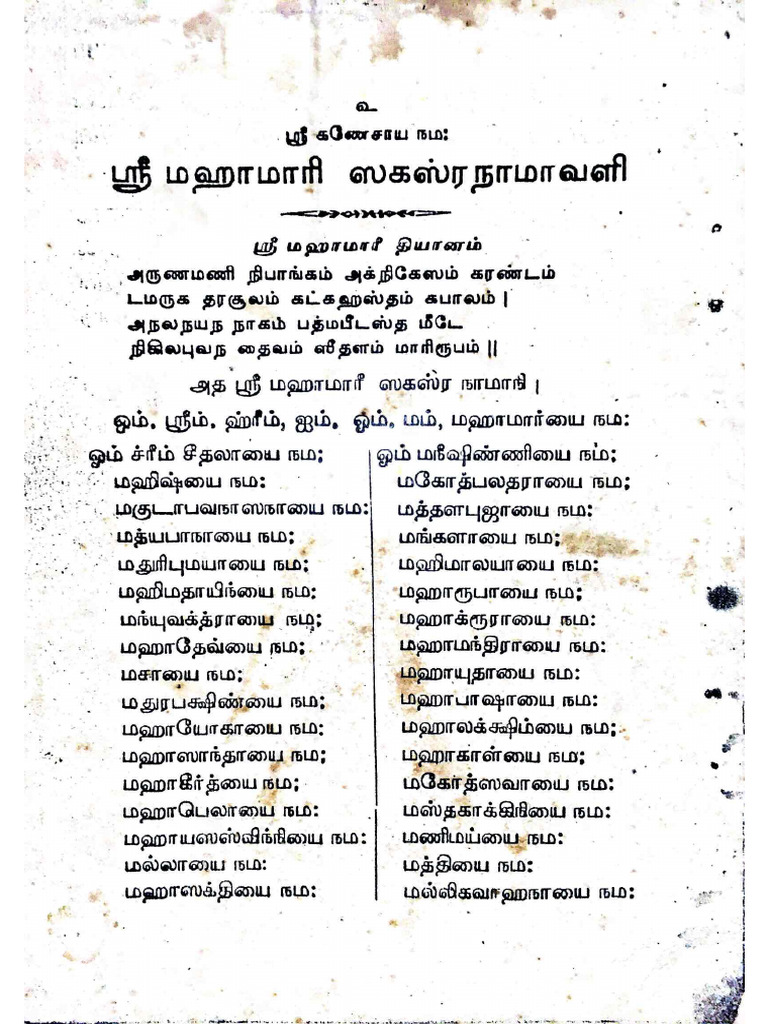 உ
ஸ்ரீ கணேசாய நம:
ஸ்ரீ மஹாமாரி ஸகஸ்ரநாமாவளி
ஸ்ரீ மஹாமாரீ தியானம்
அருணமணி நிபாங்கம் அக்நிகேஸம் கரண்டம்
டமருக தரசூலம் கட்கஹஸ்தம் கபாலம் |
அநலநயந நாகம் பத்மபீடஸ்த மீடே
நிகிலபுவந தைவம் ஸீதளம் மாரிரூபம் ||
அத ஸ்ரீ மஹாமாரீ ஸகஸ்ர நாமாநி |
ஓம். ஸ்ரீம். ஹ்ரீம், ஐம். ஓம். மம், மஹாமார்யை நம:
ஓம் ச்ரீம் சீதலாயை நம;
மஹிஷ்யை நம:
மகுடாபவநாஸநாயை நம:
மத்யபாநாயை நம;
மதுரிபுமயாயை நம:
மஹிமதாயிந்யை நம:
மந்யுவக்த்ராயை நம;
மஹாதேவ்யை நம;
மசாயை நம;
மதுரபக்ஷிண்யை நம:
மஹாயோகாயை நம:
மஹாஸாந்தாயை நம;
மஹாகீர்த்யை நம:
மஹாபெலாயை நம:
மஹாயஸஸ்விந்நியை நம:
மல்லாயை நம:
மஹாஸக்தியை நம:
ஓம் மநீஷிண்ணியை நம;
மகோத்பலதராயை நம;
மத்தளபுஜாயை நம:
மங்களாயை நம;
மஹிமாலயாயை நம:
மஹாரூபாயை நம;
மஹாக்ரூராயை நம:
மஹாமந்திராயை நம:
மஹாயுதாயை நம:
மஹாபாஷாயை நம:
மஹாலக்ஷிம்யை நம;
மஹாகாள்யை நம;
மகோத்ஸவாயை நம:
மஸ்தகாக்கிரியை நம:
மணிமய்யை நம:
மத்தியை நம:
மல்லிகவாஹநாயை நம: